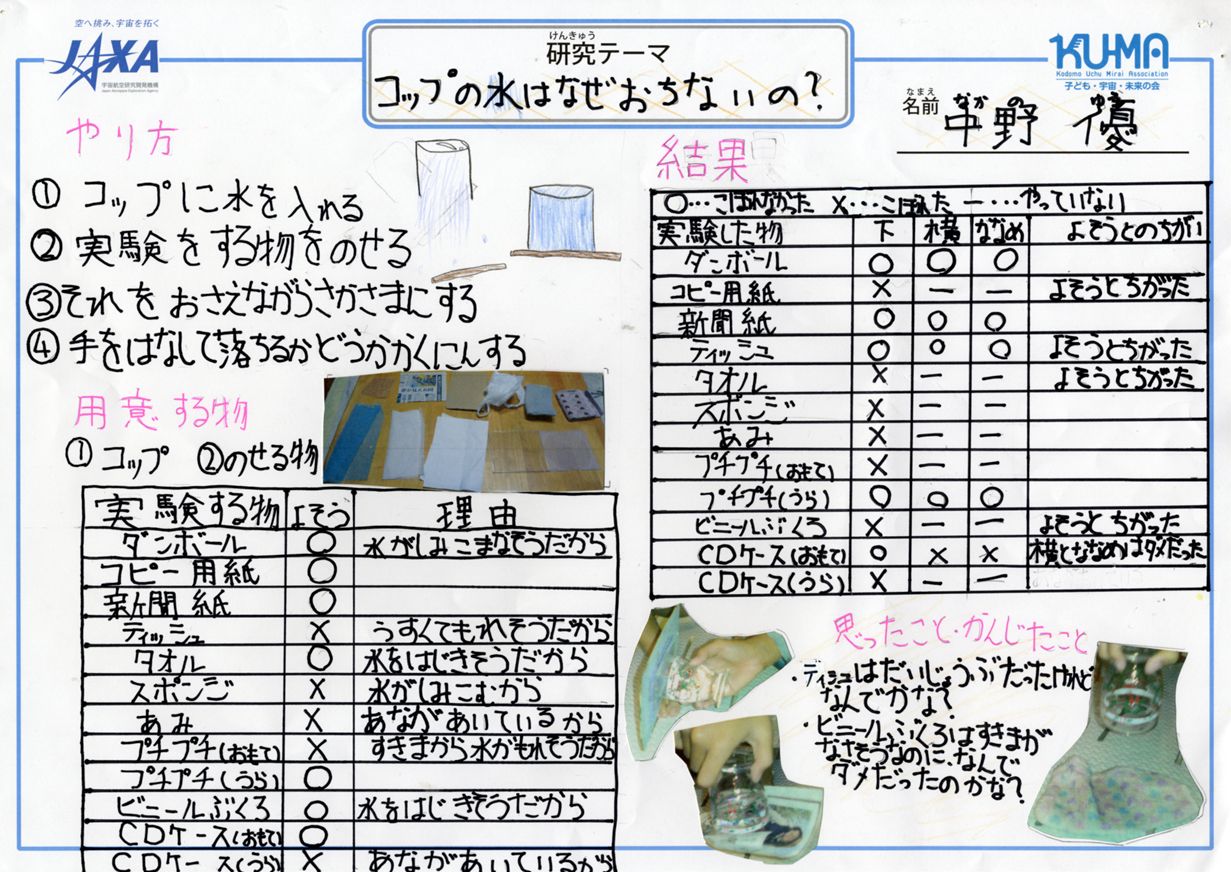 空へ挑み、宇宙を拓く
JAXA
宇宙航空研究開発機構
Japan Aerospace Exploration Agency
けんきゅう
研究テーマ
コップの水はなぜおちないの?
KU-MA
Kodomo Uchu Mirai Association
子ども・宇宙・未来の会
なまえ なかの ゆう
名前 中野 優
やり方
① コップに水を入れる
② 実験をする物をのせる
③それをおさえながらさかさまにする
④ 手をはなして落ちるかどうかかくにんする
用意する物
① コップ ②のせる物
実験する物 よそう 理由
ダンボール ○ 水がしみこまなそうだから
コピー用紙 ○
新聞紙 ○
ティッシュ × うすくてもれそうだから
タオル ○ 水をはじきそうだから
スポンジ × 水がしみこむから
あみ × あながあいているから
プチプチ(おもて) × すきまから水がもれそうだから
プチプチ(うら) ○
ビニールぶくろ ○ 水をはじきそうだから
CDケース(おもて) ○
CDケース(うら) × あながあいているから
結果
○…こぼれなかった ×…こぼれた ー…やっていない
実験した物 下 横 ななめ よそうとのちがい
ダンボール ○ ○ ○
コピー用紙 × ー ー よそうとちがった
新聞紙 ○ ○ ○
ティッシュ ○ ○ ○ よそうとちがった
タオル × ー ー よそうとちがった
スポンジ × ー ー
あみ × ー ー
プチプチ(おもて) × ー ー
プチプチ(うら) ○ ○ ○
ビニールぶくろ × ー ー よそうとちがった
CDケース(おもて) ○ × × 横とななめはダメだった
CDケース(うら) × ー ー
思ったこと・かんじたこと
・ティシュはだいじょうぶだったけれど
なんでかな?
・ビニールぶくろはすきまが
なさそうなのに、なんで
ダメだったのかな?